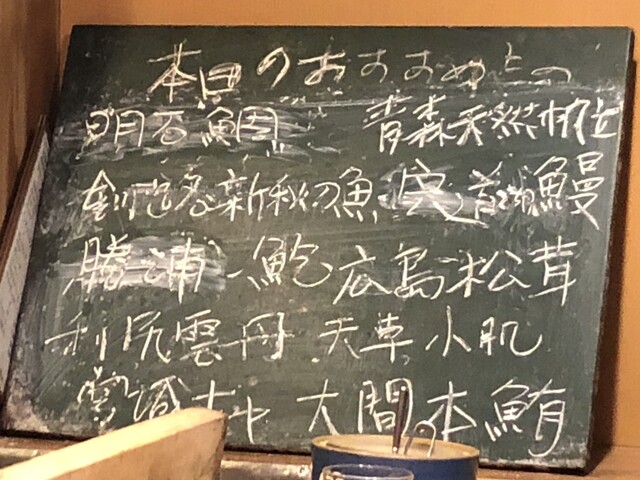 本日のおすすめ
明石鯛 青森天然
釧路新秋刀魚 鰻
勝浦鮑 広島松茸
利尻雲丹 天草小肌
宮城 大間本鮪